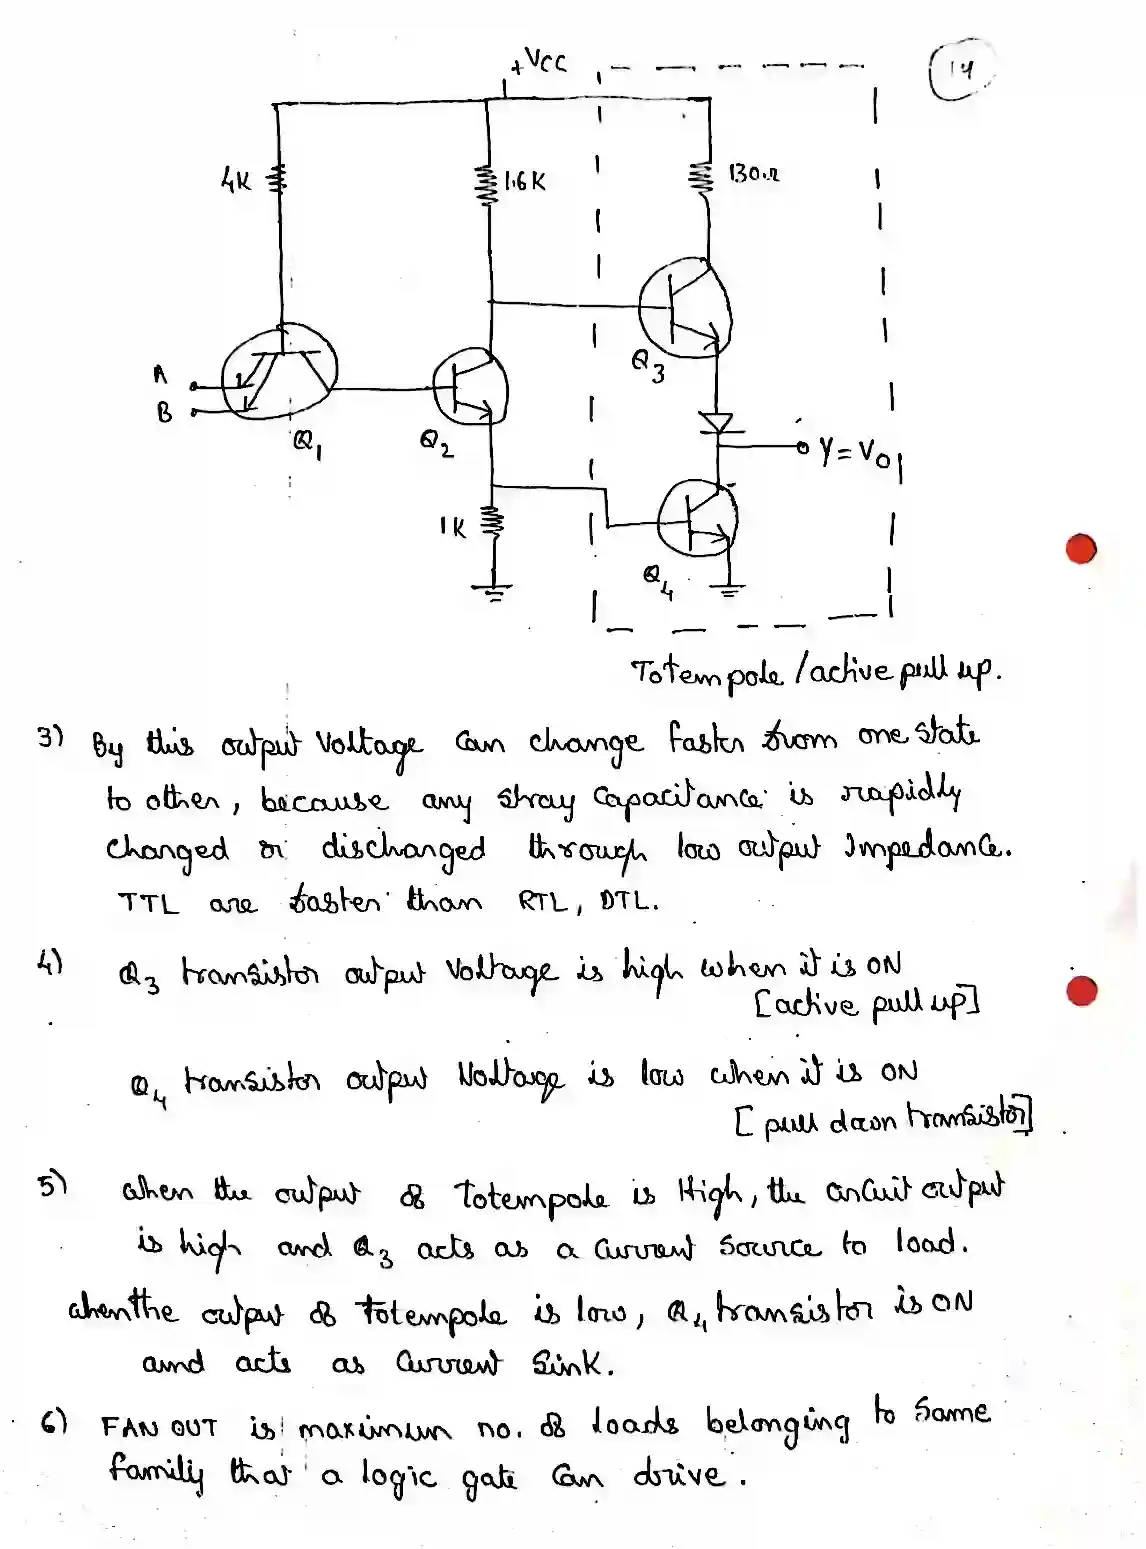 +VCC
14
4K
1.6K
130Ω
A
B
Q1
Q2
Q3
Y=Vo
1K
Q4
Totempole / active pull up.
3) By this output Voltage Can change faster from one state
to other, because any stray Capacitance is rapidly
changed or dischanged through low output Impedance.
TTL are faster than RTL, DTL.
4) Q3 transistor output Voltage is high when it is ON
[active pull up]
Q4 transistor output Voltage is low when it is ON
[pull down transistor]
5) when the output of Totempole is High, the circuit output
is high and Q3 acts as a Current Source to load.
when the output of totempole is low, Q4 transistor is ON
and acts as Current Sink.
6) FAN OUT is maximum no. of loads belonging to same
family that a logic gate Can drive.